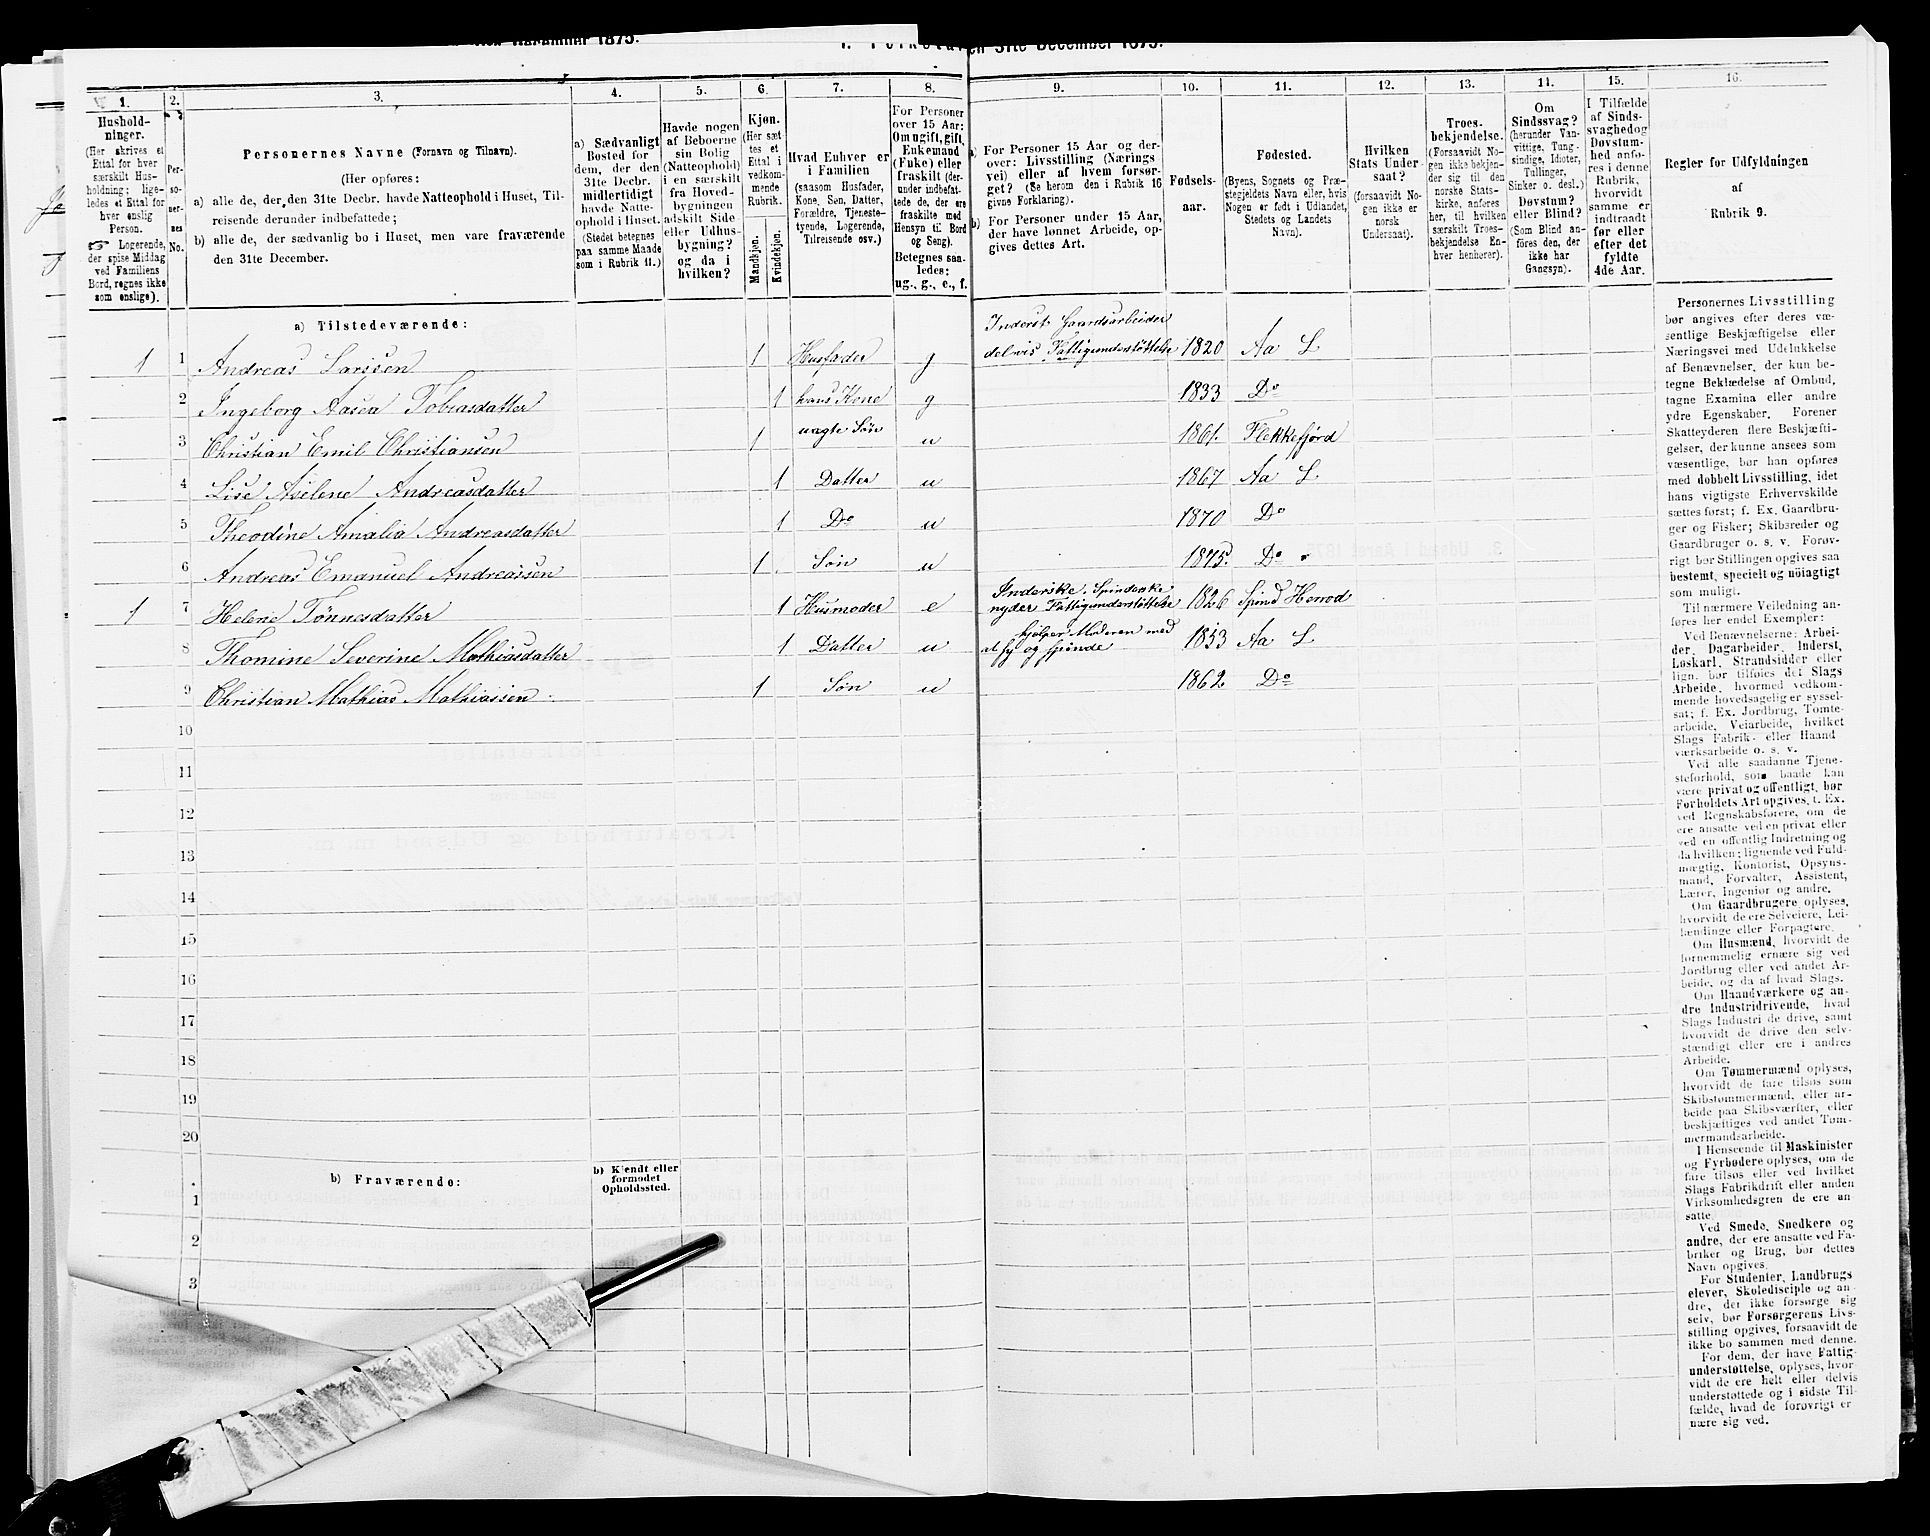 1. Folketal den 31te December 1875.
1.
Hushold-
ninger.
(Her skrives et
Ettal for hver
særskilt Hus-
holdning; lige-
ledes et Ettal for
hver enslig
Person.
Logerende,
der spise Middag
ved Familiens
Bord, regnes ikke
som enslige).
2.
Per-
so-
ner-
nes
No.
3.
Personernes Navne (Fornavn og Tilnavn).
(Her opføres:
a) alle de, der den 31te Decbr. havde Natteophold i Huset, Til-
reisende derunder indbefattede;
b) alle de, der sædvanlig bo i Huset, men vare fraværende
den 31te December.
4.
a) Sædvanligt
Bosted for
dem, der den
31te Decbr.
midlertidigt
havde Natte-
ophold i Huset.
(Stedet betegnes
paa samme Maade
som i Rubrik 11.)
5.
Havde nogen
af Beboerne
sin Bolig
(Natteophold)
i en særskilt
fra Hoved-
bygningen
adskilt Side-
eller Udhus-
bygning?
og da i
hvilken?
6.
Kjøn.
(Her sæt-
tes et
Ettal i
vedkom-
mende
Rubrik.
Mandkjøn.
Kvindekjøn.
7.
Hvad Enhver er
i Familien
(saasom Husfader,
Kone, Søn, Datter,
Forældre, Tjeneste-
tyende, Logerende,
Tilreisende osv.)
8.
For Personer
over 15 Aar:
Om ugift, gift,
Enkemand
(Enke) eller
fraskilt (der-
under indbefat-
tede de, der ere
fraskilte med
Hensyn til Bord
og Seng).
Betegnes saa-
ledes:
ug., g., e., f.
9.
a) For Personer 15 Aar og der-
over: Livsstilling (Nærings-
vei) eller af hvem forsør-
get? (Se herom den i Rubrik 16
givne Forklaring).
b) For Personer under 15 Aar,
der have lønnet Arbeide, op-
gives dettes Art.
10.
Fødsels-
aar.
11.
Fødested.
(Byens, Sognets og Præ-
stegjeldets Navn eller, hvis
Nogen er født i Udlandet,
Stedets og Landets
Navn).
12.
Hvilken
Stats Under-
saat?
(forsaavidt No-
gen ikke er
norsk
Undersaat).
13.
Troes-
bekjendelse.
(Forsaavidt No-
gen ikke bekjen-
der sig til den
norske Stats-
kirke, anføres
her, til hvilken
særskilt Troes-
bekjendelse En-
hver henhører).
14.
Om
Sindssvag?
(herunder Van-
vittige, Tung-
sindige, Idioter,
Tullinger,
Sinker o. desl.)
Døvstum?
eller Blind?
(Som Blind an-
føres den, der
ikke har
Gangsyn).
15.
I Tilfælde
af Sinds-
svaghed og
Døvstum-
hed anfø-
res i denne
Rubrik,
hvorvidt
samme er
indtraadt
før eller
efter det
fyldte
4de Aar.
16.
Regler for Udfyldningen
af
Rubrik 9.
a) Tilstedeværende:
1 1 Andreas Larssen 1 Husfader g Inderst. Gaardsarbeider delvis Fattigunderstøttelse 1820 Aa L
2 Ingeborg Aasea Tobiasdatter 1 hans Kone g 1833 Do
3 Christian Emil Christiansen 1 uægte Søn u 1861. Flekkefjord
4 Lise Aselene Andreasdatter 1 Datter u 1867 Aa L
5 Theodine Amalia Andreasdatter 1 Do u 1870 Do
6 Andreas Emanuel Andreassen 1 Søn u 1875. Do
1 7 Helene Tønnesdatter 1 Husmoder e Inderske. Spinderske nyder Fattigunderstøttelse 1826 Spind Herred
8 Thomine Severine Mathiasdatter 1 Datter u hjelper Moderen med at sy og spinde 1853 Aa L
9 Christian Mathias Mathiassen 1 Søn u 1862 Do
10
11
12
13
14
15
16
17
18
19
20
b) Fraværende:
b) Kjendt eller
formodet
Opholdssted.
1
2
3
Personernes Livsstilling
bør angives efter deres væ-
sentlige Beskjæftigelse eller
Næringsvei med Udelukkelse
af Benævnelser, der kun be-
tegne Beklædelse af Ombud,
tagne Examina eller andre
ydre Egenskaber. Forener
Skatteyderen flere Beskjæfti-
gelser, der kunne ansees som
væsentlige, bør han opføres
med dobbelt Livsstilling, idet
hans vigtigste Erhvervskilde
sættes først; f. Ex. Gaardbru-
ger og Fisker; Skibsreder og
Gaardbruger o. s. v. Forøv-
rigt bør Stillingen opgives saa
bestemt, specielt og nøiagtigt
som muligt.
Til nærmere Veiledning an-
føres her endel Exempler:
Ved Benævnelserne: Arbei-
der, Dagarbeider, Inderst,
Løskarl, Strandsidder eller
lign. bør tilføies det Slags
Arbeide, hvormed vedkom-
mende hovedsagelig er syssel-
sat; f. Ex. Jordbrug, Tomte-
arbeide, Veiarbeide, hvilket
Slags Fabrik- eller Haand-
værksarbeide o. s. v.
Ved alle saadanne Tjene-
steforhold, som baade kan
være privat og offentligt, bør
Forholdets Art opgives, f. Ex.
ved Regnskabsførere, om de
ere ansatte ved en privat eller
ved en offentlig Indretning og
da hvilken; lignende ved Fuld-
mægtig, Kontorist, Opsyns-
mand, Forvalter, Assistent,
Lærer, Ingeniør og andre.
Om Gaardbrugere oplyses,
hvorvidt de ere Selveiere, Lei-
lændinge eller Forpagtere.
Om Husmænd, hvorvidt de
fornemmelig ernære sig ved
Jordbrug eller ved andet Ar-
beide, og da af hvad Slags.
Om Haandværkere og an-
dre Industridrivende, hvad
Slags Industri de drive, samt
hvorvidt de drive den selv-
stændigt eller ere i andres
Arbeide.
Om Tømmermænd oplyses,
hvorvidt de fare tilsøs som
Skibstømmermænd, eller ar-
beide paa Skibsværfter, eller
beskjæftiges ved andet Tøm-
mermandsarbeide.
I Henseende til Maskinister
og Fyrbødere oplyses, om de
fare tilsøs eller ved hvilket
Slags Fabrikdrift eller anden
Virksomhedsgren de ere an-
satte.
Ved Smede, Snedkere og
andre, der ere ansatte ved Fa-
briker og Brug, bør dettes
Navn opgives.
For Studenter, Landbrugs-
elever, Skoledisciple og an-
dre, der ikke forsørge sig
selv, bør Forsørgerens Livs-
stilling opgives, forsaavidt de
ikke bo sammen med denne.
For dem, der have Fattig-
understøttelse, oplyses, hvor-
vidt de ere helt eller delvis
understøttede og i sidste Til-
fælde, hvad de forøvrigt er-
nære sig ved.